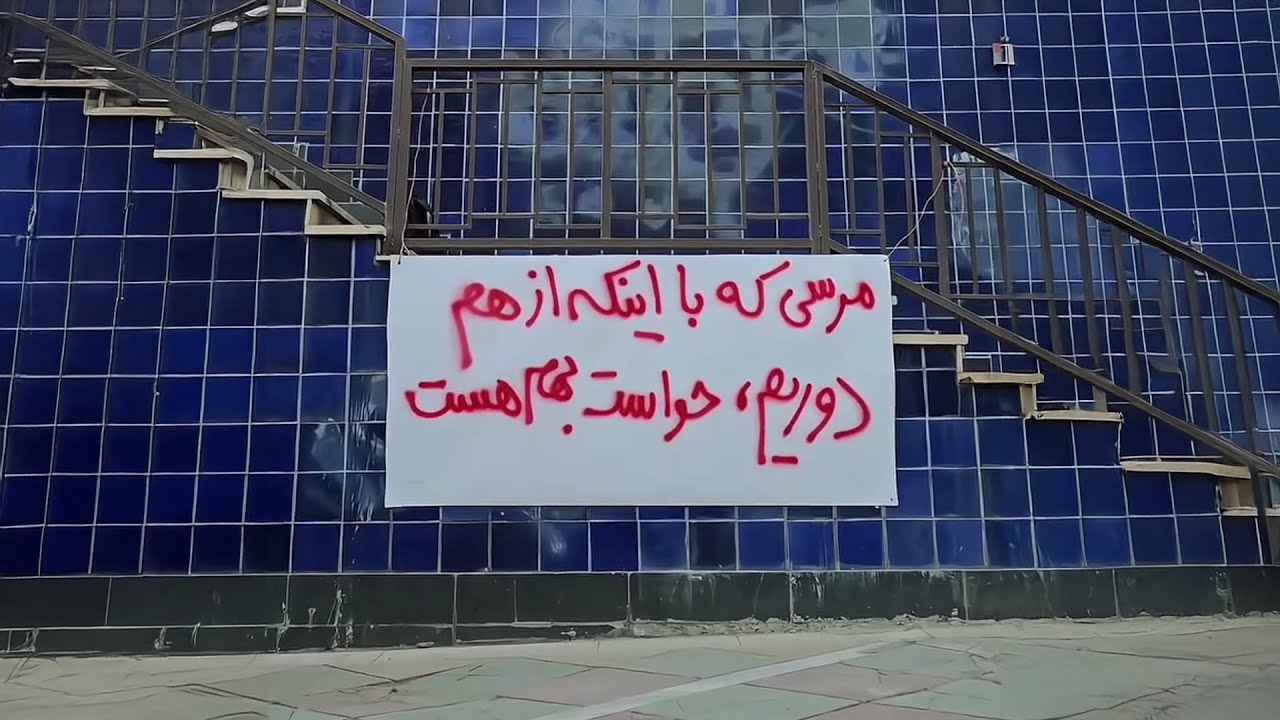 مرسی که با اینکه از هم
دوریم، حواست بهم هست